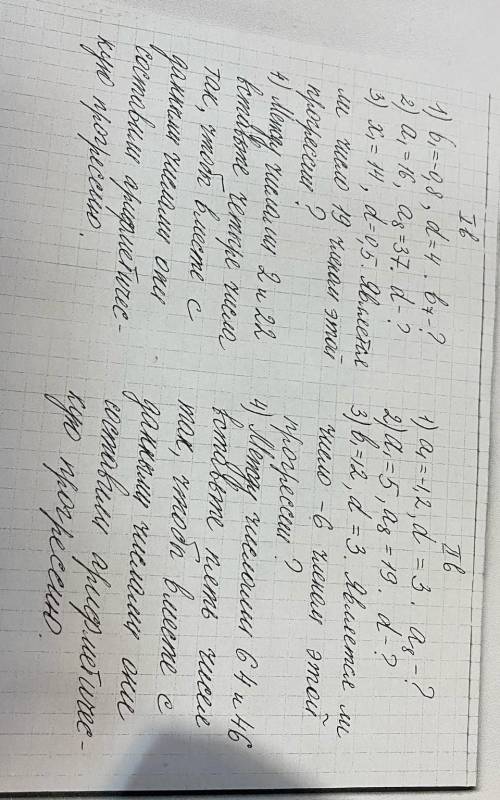 Iв
1) b₁ = -0,8, d = 4. b₇ - ?
2) a₁ = 16, a₈ = 37. d - ?
3) x₁ = 14, d = 0,5. Является
ли число 19 членом этой
прогрессии?
4) Между числами 2 и 22
вставьте четыре числа
так, чтоб вместе с
данными числами они
составили арифметичес-
кую прогрессию.
IIв
1) a₁ = -1,2, d = 3. a₈ - ?
2) a₁ = 5, a₈ = 19. d - ?
3) b₁ = 12, d = 3. Является ли
число -6 членом этой
прогрессии?
4) Между числами 64 и 46
вставьте пять чисел
так, чтобы вместе с
данными числами они
составили арифметичес-
кую прогрессию.